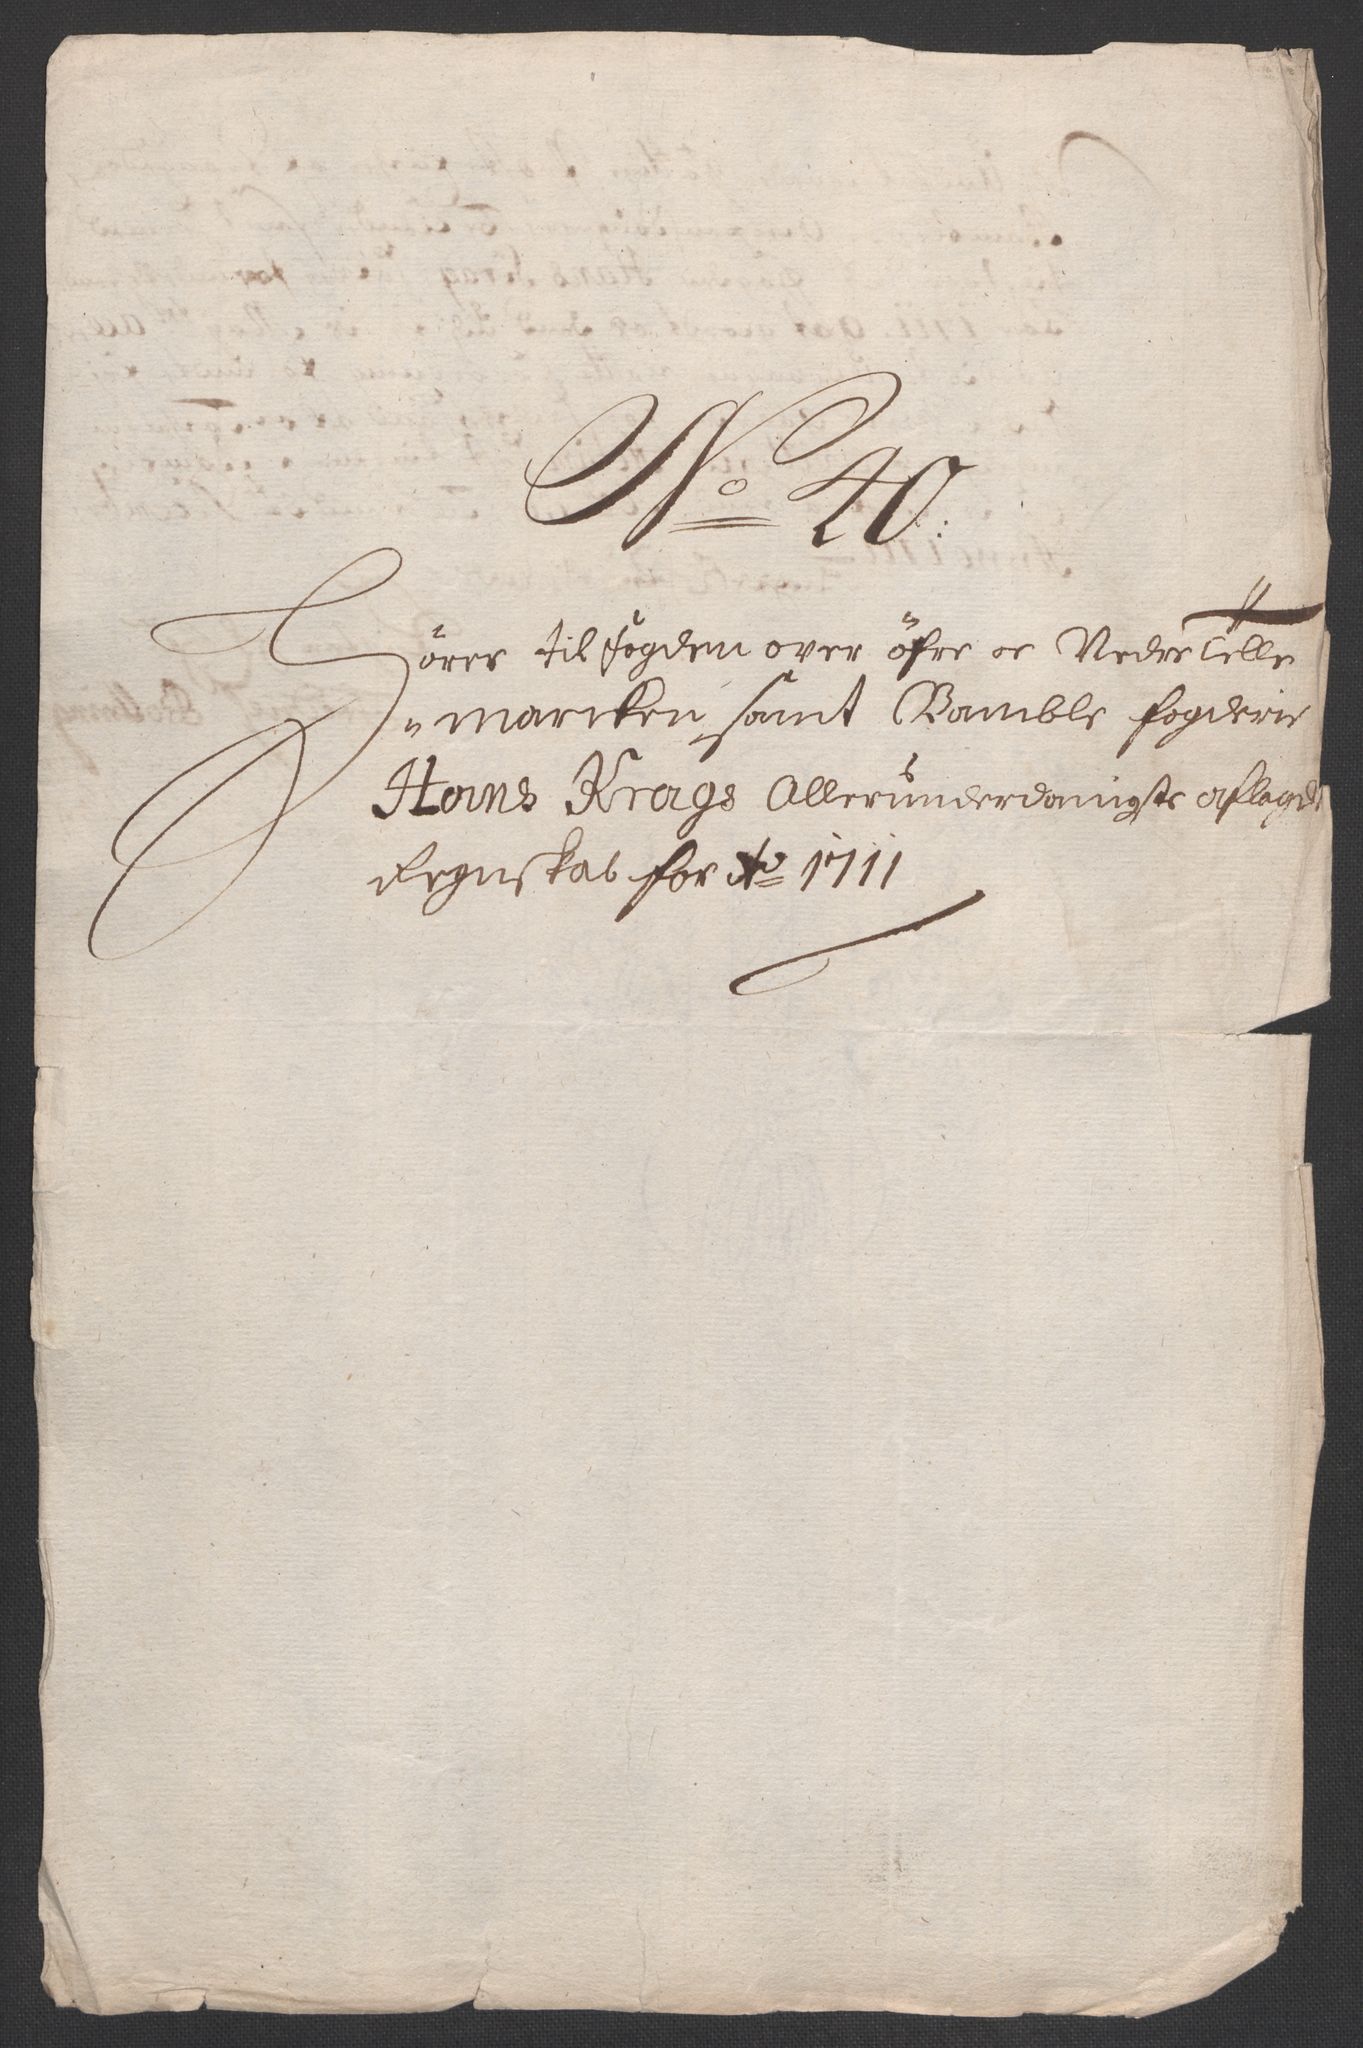 No 40:
Hörer til fogden over öfre oc Nedre Telle
"marcken, samt Bamble fogderie
Hans Krags Allerunderdanigste aflagde
Regnskab for Ao 1711